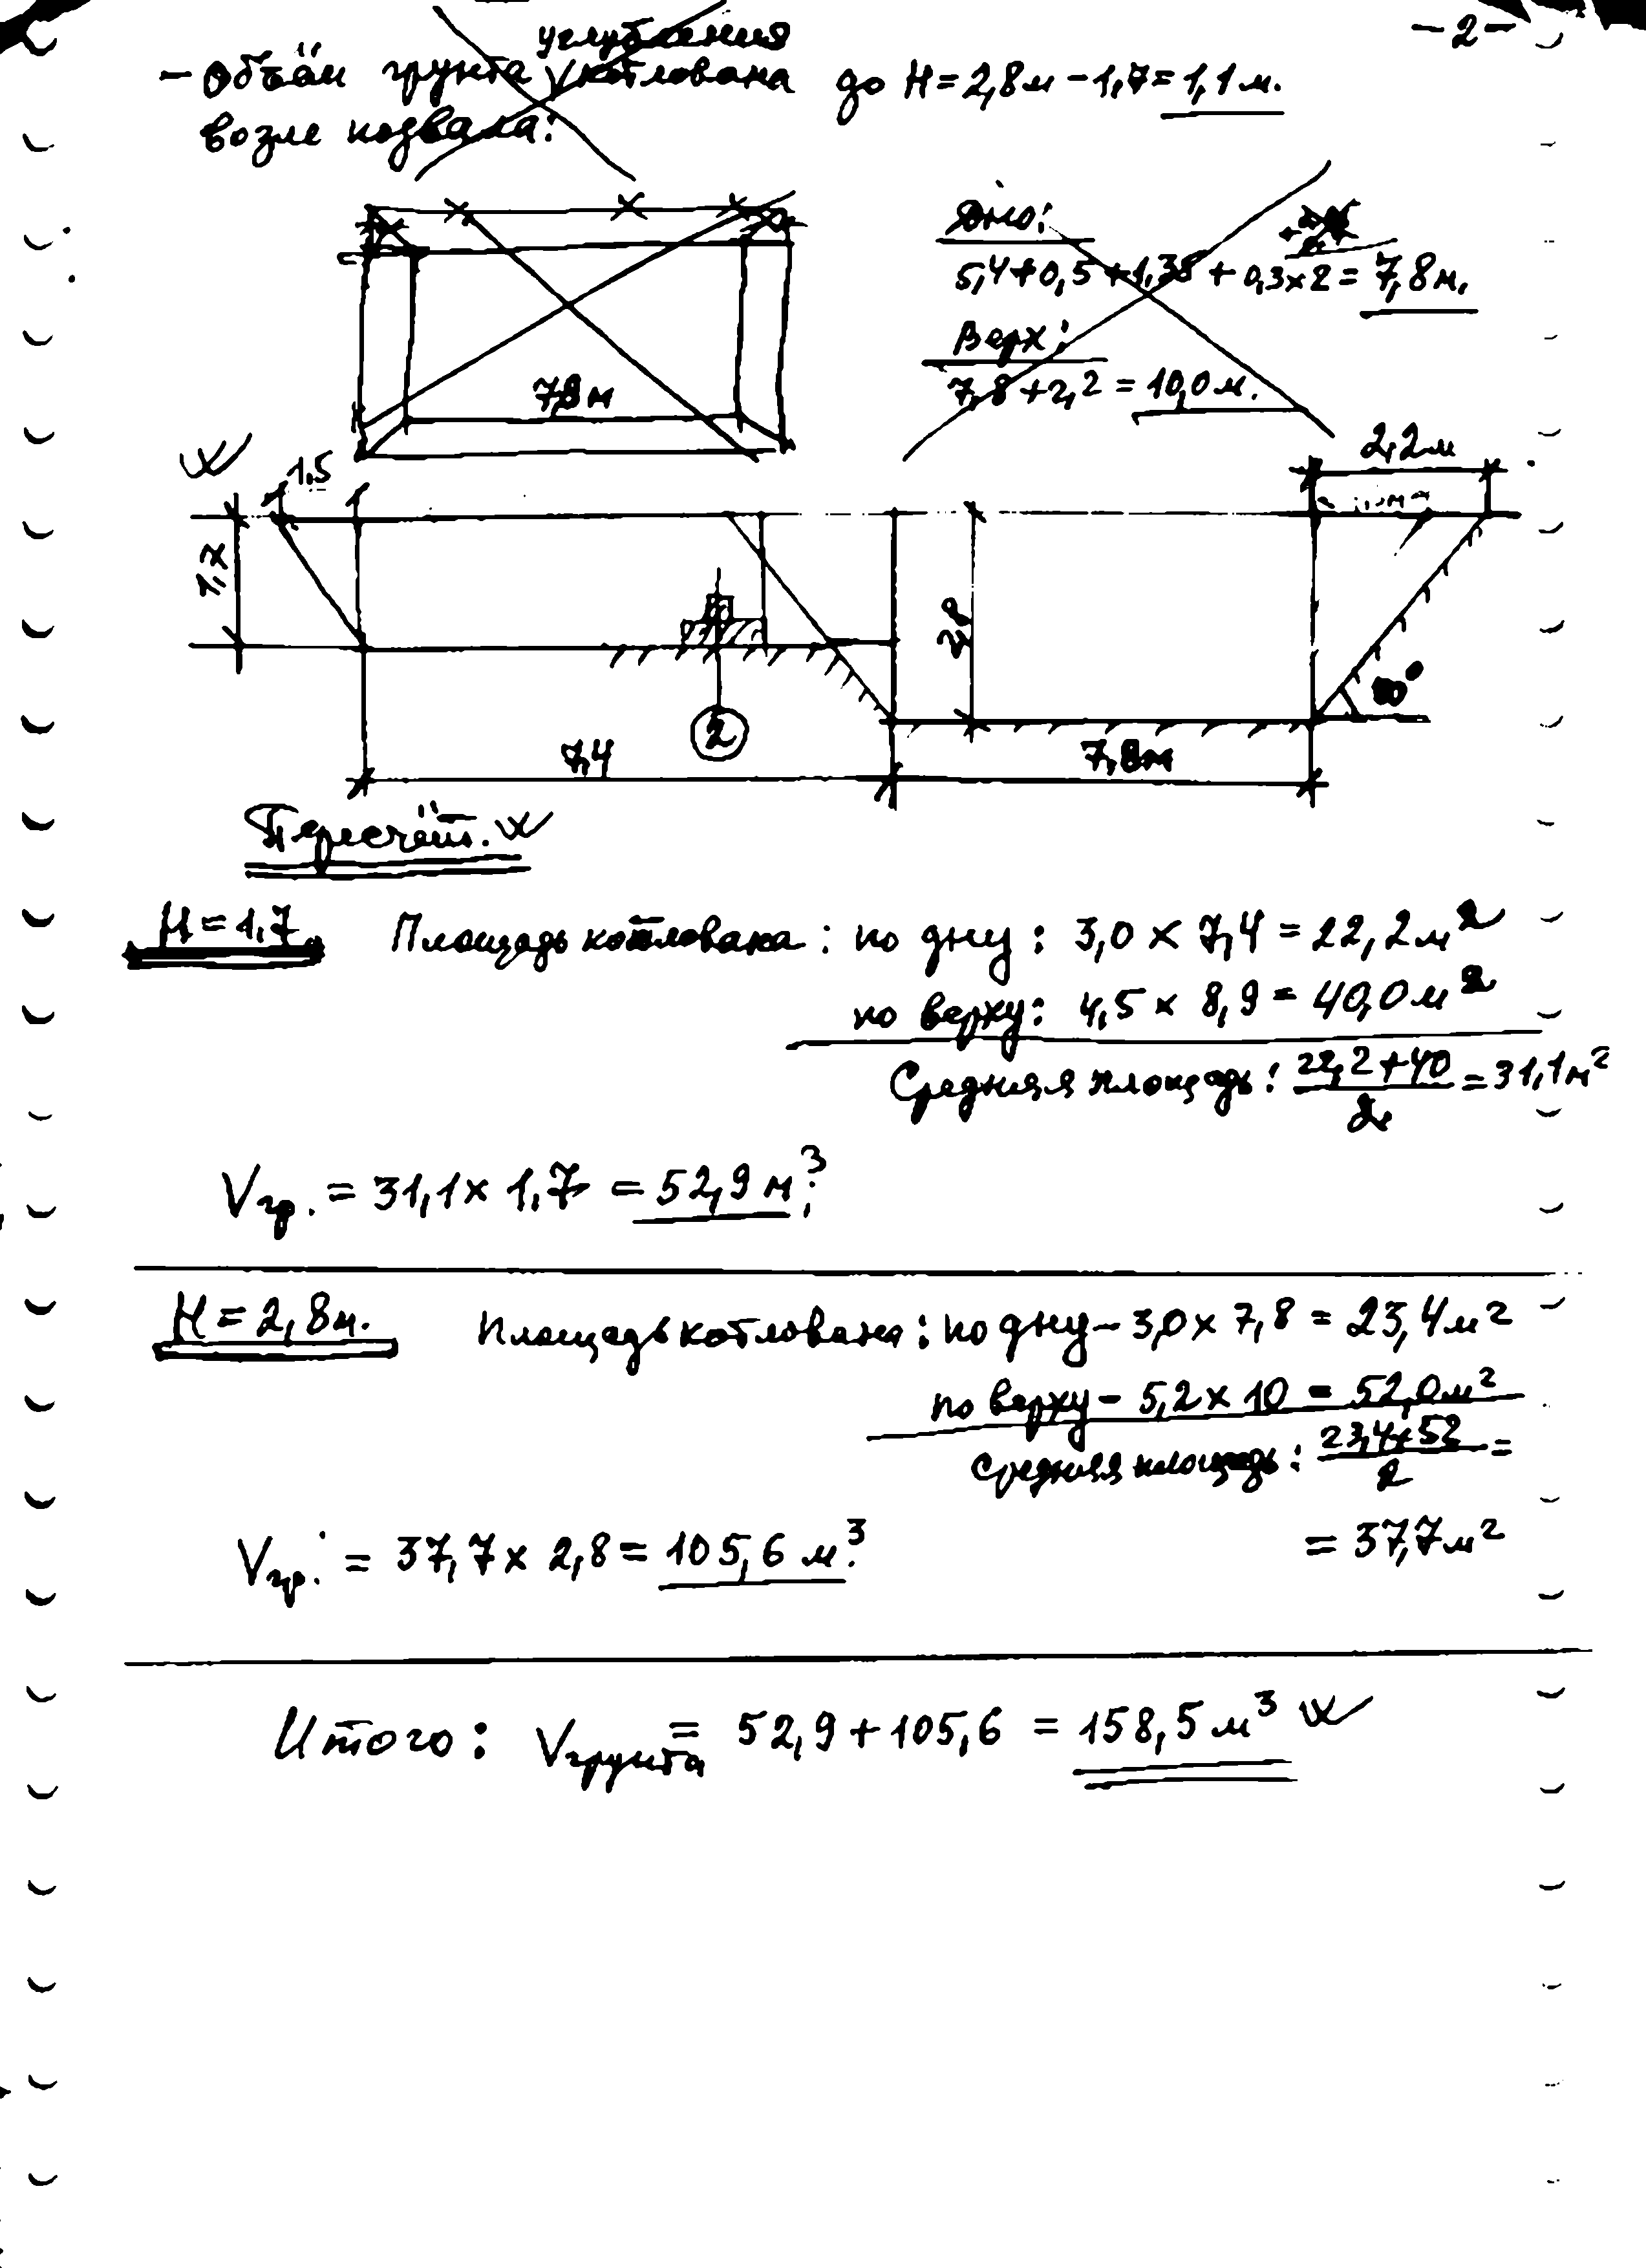 -2-
углубления
- Объём грунта V котлована до H=2,8м-1,7=1,1м.
возле подвала:
Дно:
5,4+0,5+1,38+0,3x2=7,8м.
Верх:
7,8+2,2=10,0м.
7,8м
2,2м
1,5
1,7
2,8
2
7,4
7,8м
Пересчёт.
H=1,7 Площадь котлована: по дну: 3,0 x 7,4 = 22,2м²
по верху: 4,5 x 8,9 = 40,0м²
Средняя площадь: 22,2+40/2 = 31,1м²
Vгр. = 31,1 x 1,7 = 52,9 м³.
H=2,8м. Площадь котлована: по дну - 3,0 x 7,8 = 23,4м²
по верху - 5,2 x 10 = 52,0м²
Средняя площадь: 23,4+52/2 =
= 37,7м²
Vгр. = 37,7 x 2,8 = 105,6 м³.
Итого: Vгрунта = 52,9 + 105,6 = 158,5м³